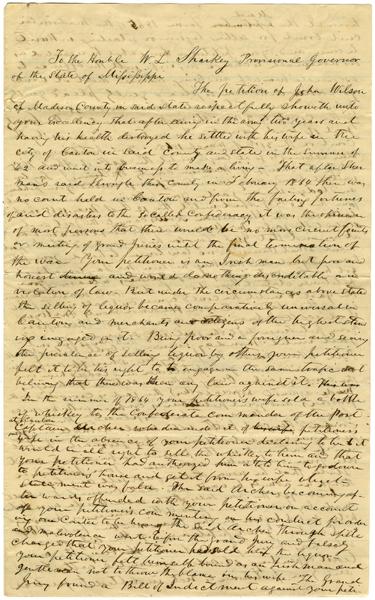 To the Honble W. L. Sharkey Provisional Governor
of the State of Mississippi
The petition of John Wilson
of Madison County in said State respectfully showeth unto
your Excellency that after being in the army two years and
having his health destroyed he settled with his wife in the
city of Canton in said County and state in the Summer of
62 and went into business to make a living - That after Sher
mans raid through the county in February 1864 there was
no court held in Canton and from the failing fortunes
and disasters to the so called Confederacy it was the opinion
of most persons that there would be no more circuit courts
or meeting of grand juries until the final termination of
the war Your petitioner is an Irish man but poor and
honest and would do nothing discreditable or in
violation of law. But under the circumstances above stated
the selling of liquor became comparatively universal in
Canton and merchants and citizens of the highest
engaged in it. Being poor and a foreigner and seeing
the prevalence of selling liquor by others your petitioner
felt it to be his right to engage in the same traffic not
believing that there was then any law against it. This was
In the summer of 1864 your petitioners wife sold a bottle
of whiskey to the Confederate commander of the Post
Captain Archer who demanded it of petitioners
wife in the absence of your petitioner declaring to her it
would be all right to sell the whiskey to them and that
your petitioner had authorized him to go down
to petitioners house and get it from his wife which
statement was false The said Archer becoming af
terwards offended with your petitioner on account
of your petitioners on his conduct in order
ing our Canton to be the said Archer through spite
and malevolence went before the Grand Jury and falsely
charged that your petitioner had sold him the liquor
Your petitioner felt himself bound as an Irish man and
gentleman not to throw the blame on his wife. The Grand
Jury found a Bill of Indictment against your peti